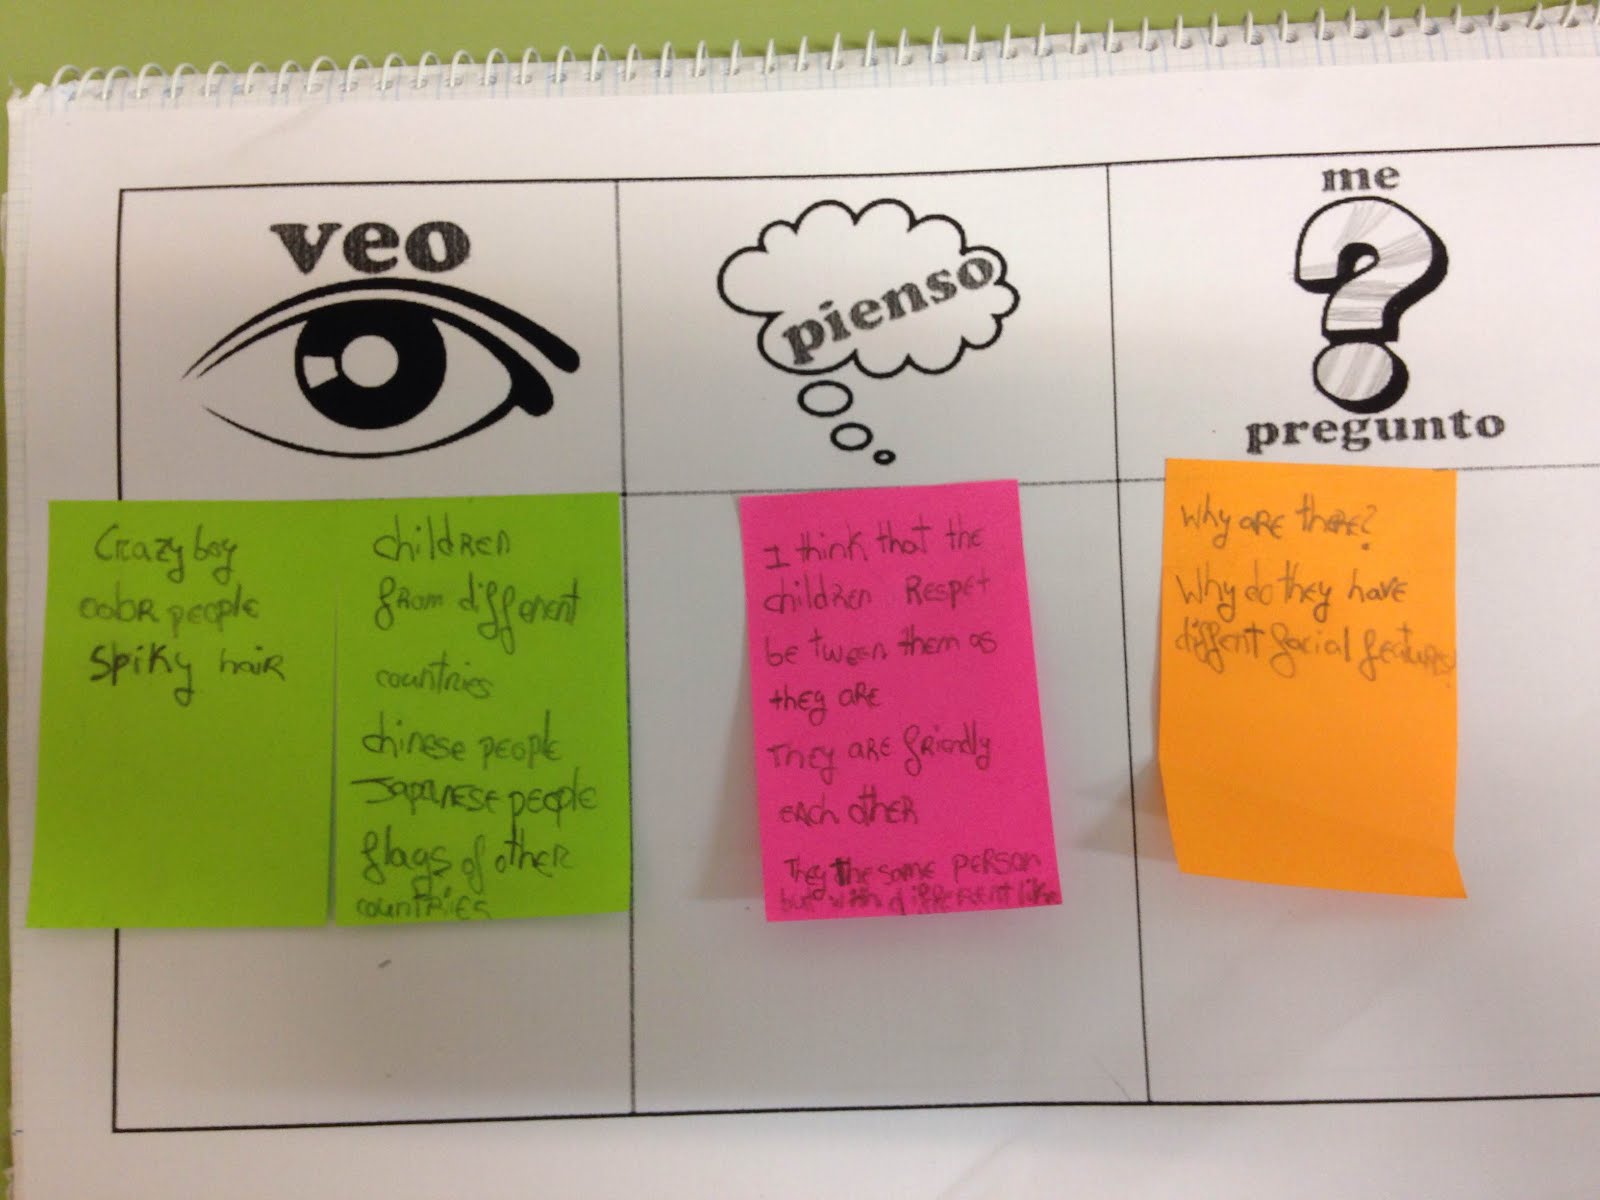 veo
pienso
me
pregunto
Crazy boy
color people
spiky hair
children
from different
countries
chinese people
Japanese people
flags of other
countries
I think that the
children Respet
be tween them as
they are
They are friendly
each other
They the same person
but with different like
Why are there?
Why do they have
diffent facial features?